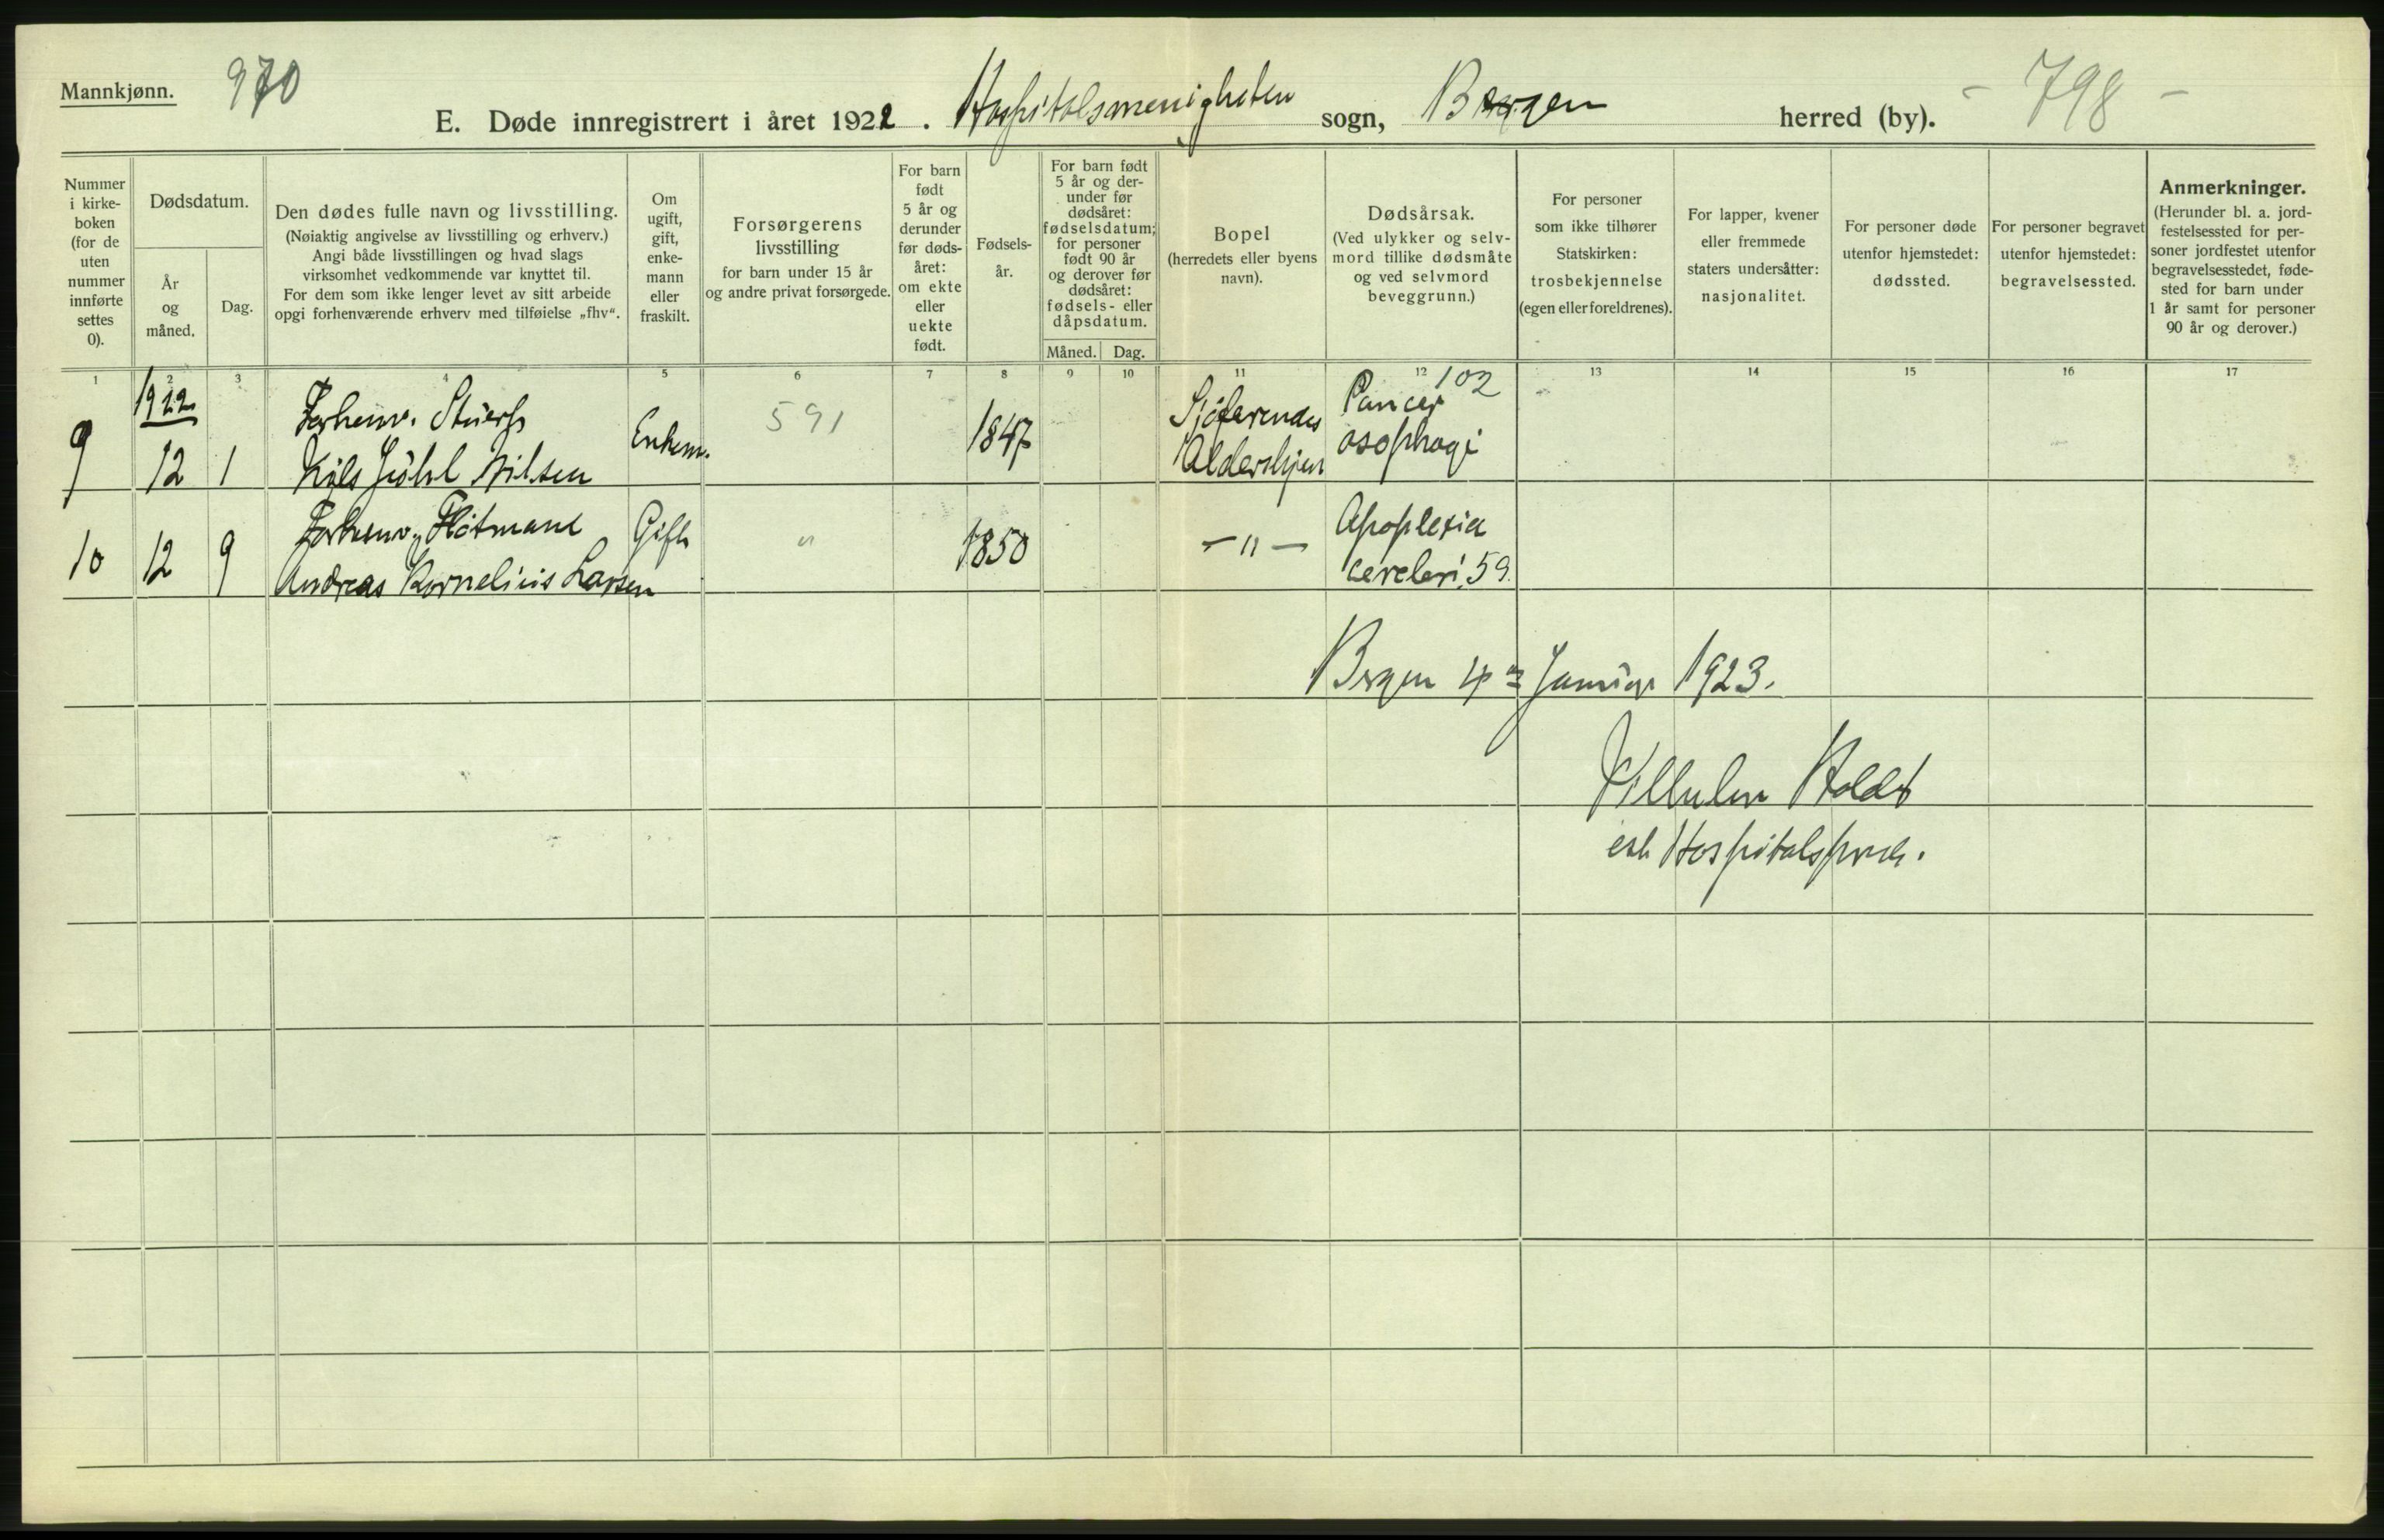 Mannkjønn. 970
E. Døde innregistrert i året 1922. Hospitalsmenigheten sogn, Bergen herred (by). - 798 -
Nummer
i kirke-
boken
(for de
uten
nummer
innførte
settes
0).
Dødsdatum.
År
og
måned.
Dag.
Den dødes fulle navn og livsstilling.
(Nøiaktig angivelse av livsstilling og erhverv.)
Angi både livsstillingen og hvad slags
virksomhet vedkommende var knyttet til.
For dem som ikke lenger levet av sitt arbeide
opgi forhenværende erhverv med tilføielse „fhv“.
Om
ugift,
gift,
enke-
mann
eller
fraskilt.
Forsørgerens
livsstilling
for barn under 15 år
og andre privat forsørgede.
For barn
født
5 år og
derunder
før døds-
året:
om ekte
eller
uekte
født.
Fødsels-
år.
For barn født
5 år og der-
under før
dødsåret:
fødselsdatum;
for personer
født 90 år
og derover før
dødsåret:
fødsels- eller
dåpsdatum.
Måned. Dag.
Bopel
(herredets eller byens
navn).
Dødsårsak.
(Ved ulykker og selv-
mord tillike dødsmåte
og ved selvmord
beveggrunn.)
For personer
som ikke tilhører
Statskirken:
trosbekjennelse
(egen eller foreldrenes).
For lapper, kvener
eller fremmede
staters undersåtter:
nasjonalitet.
For personer døde
utenfor hjemstedet:
dødssted.
For personer begravet
utenfor hjemstedet:
begravelsessted.
Anmerkninger.
(Herunder bl. a. jord-
festelsessted for per-
soner jordfestet utenfor
begravelsesstedet, føde-
sted for barn under
1 år samt for personer
90 år og derover.)
1 2 3 4 5 6 7 8 9 10 11 12 13 14 15 16 17
1922 Forhenv. Stuert 591 Sjøfarendes Cancer 102
9 12 1 Nils Jühl Nilsen Enkem. 1847 Aldershjem osophagi
Forhenv. Flötmand Gift " Apoplexia
10 12 9 Andreas Kornelius Larsen 1850 - " - cerebri. 59.
Bergen 4de Januar 1923.
Vilhelm Holdt
Hospitalsprest.